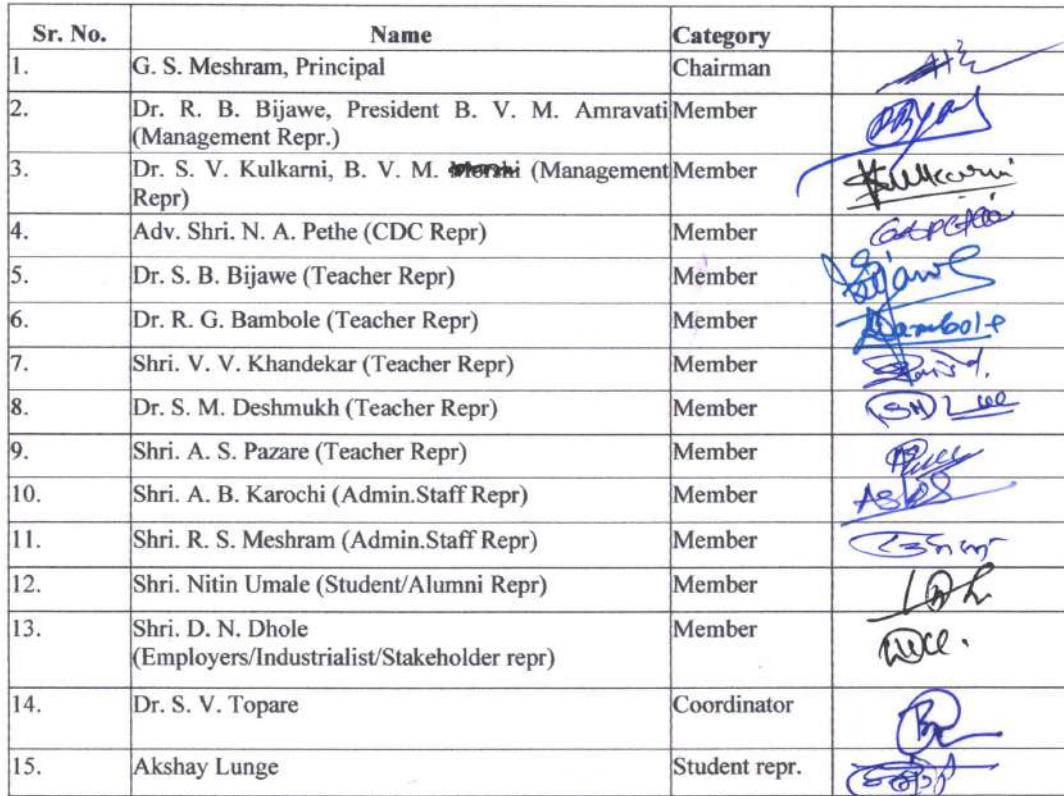 Sr. No. Name Category
1. G. S. Meshram, Principal Chairman
2. Dr. R. B. Bijawe, President B. V. M. Amravati Member
(Management Repr.)
3. Dr. S. V. Kulkarni, B. V. M. (Management Member
Repr)
4. Adv. Shri. N. A. Pethe (CDC Repr) Member
5. Dr. S. B. Bijawe (Teacher Repr) Member
6. Dr. R. G. Bambole (Teacher Repr) Member
7. Shri. V. V. Khandekar (Teacher Repr) Member
8. Dr. S. M. Deshmukh (Teacher Repr) Member
9. Shri. A. S. Pazare (Teacher Repr) Member
10. Shri. A. B. Karochi (Admin.Staff Repr) Member
11. Shri. R. S. Meshram (Admin.Staff Repr) Member
12. Shri. Nitin Umale (Student/Alumni Repr) Member
13. Shri. D. N. Dhole Member
(Employers/Industrialist/Stakeholder repr)
14. Dr. S. V. Topare Coordinator
15. Akshay Lunge Student repr.